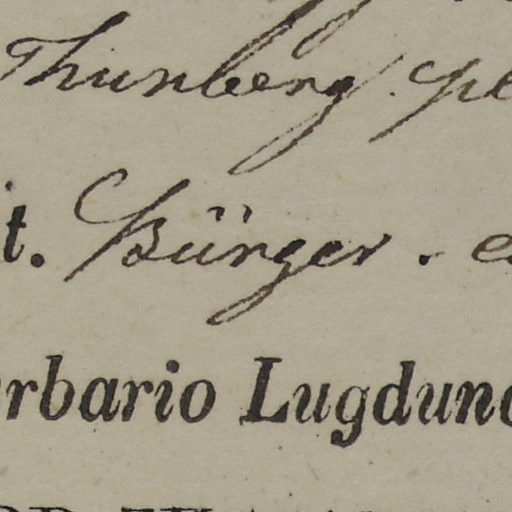 Thunberg. pl
it. Bürger. e
erbario Lugduno